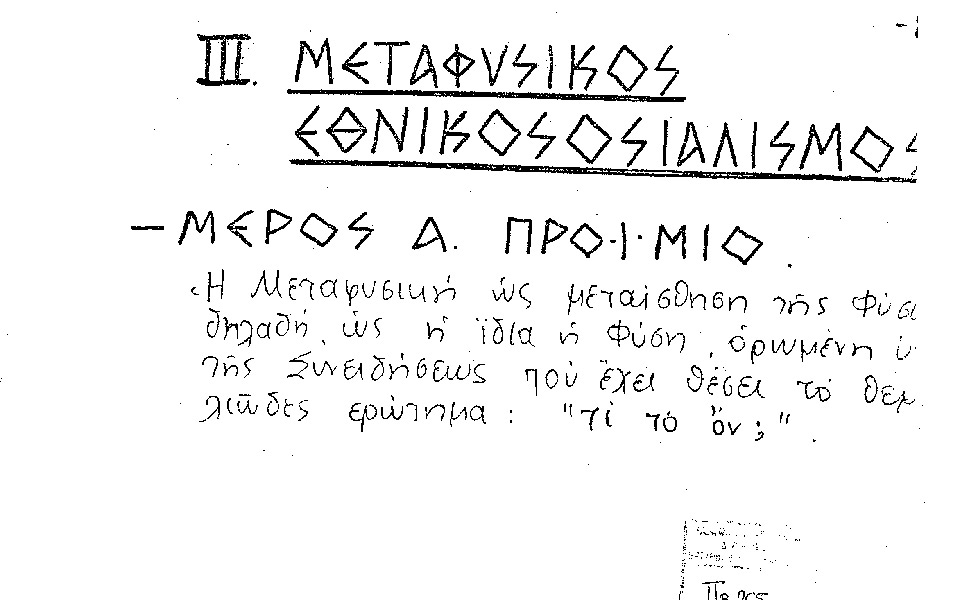 III. ΜΕΤΑΦΥSΙΚΟS
ΕΘΝΙΚΟSΟSΙΑΛΙSΜΟS
— ΜΕΡΟS Α. ΠΡΟ·Ι·ΜΙΟ
Ἡ Μεταφυσική ὡς μεταίσθηση τῆς Φύσ
δηλαδή, ὡς ἡ ἴδια ἡ Φύση, ὁρωμένη ὑ
τῆς Συνειδήσεως ποὺ ἔχει θέσει τὸ θεμ
λιῶδες ερώτημα : "τί τὸ ὄν;"